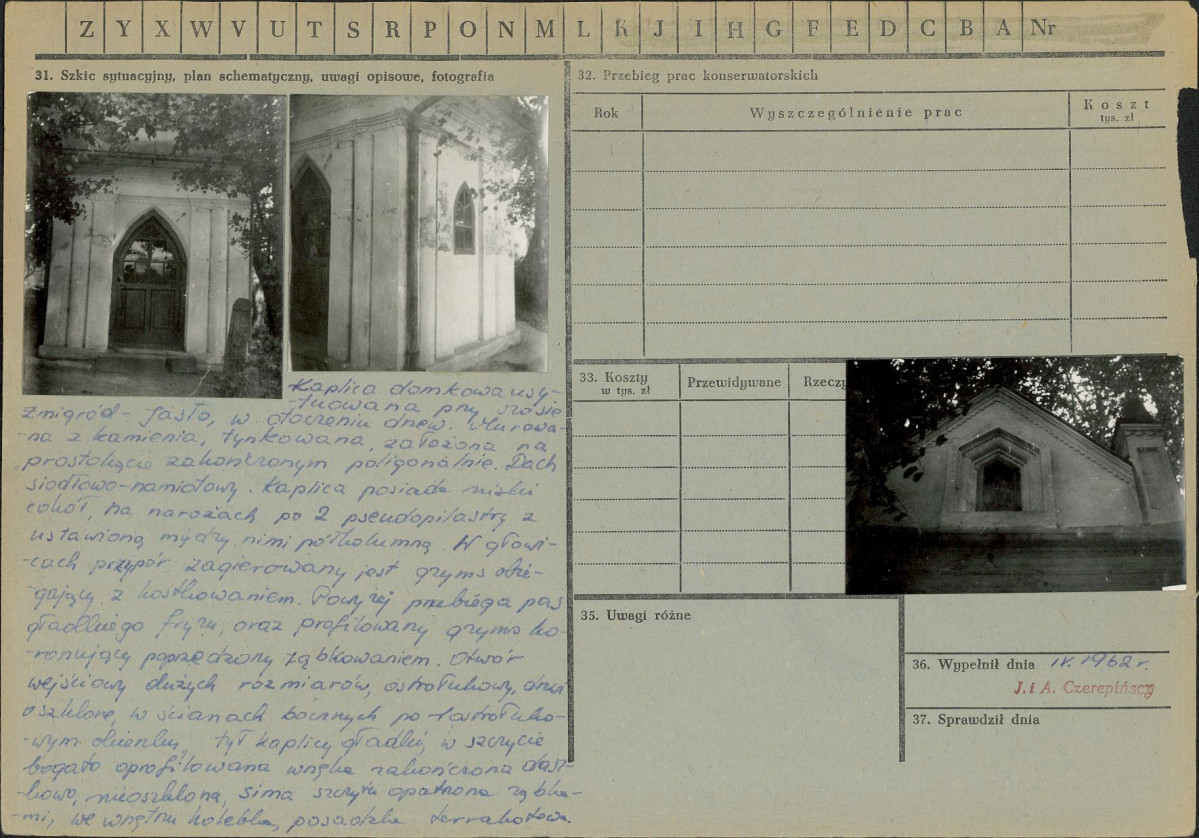 Z Y X W V U T S R P O N M L K J I H G F E D C B A Nr
31. Szkic sytuacyjny, plan schematyczny, uwagi opisowe, fotografia
Kaplica domkowa usy-
-tuowana przy szosie
Żmigród - Jasło, w otoczeniu drzew. Murowa-
-na z kamienia, tynkowana, założona na
prostokącie zakończonym poligonalnie. Dach
siodłowo-namiotowy. Kaplica posiada niski
cokół, na narożach po 2 pseudopilastry z
ustawioną między nimi półkolumną. W głowi-
-cach przypór zagierowany jest gzyms obie-
-gający z kostkowaniem. Powyżej przebiega pas
gładkiego fryzu, oraz profilowany gzyms ko-
-ronujący poprzedzony ząbkowaniem. Otwór
wejściowy dużych rozmiarów, ostrołukowy, drzwi
oszklone, w ścianach bocznych po 1 ostrołuko-
-wym okienku, tył kaplicy gładki, w szczycie
bogato oprofilowana wnęka zakończona dasz-
kowo, nieoszklona, sima szczytu opatrzona ząbka-
-mi, we wnętrzu kolebka, posadzka terrakotowa.
32. Przebieg prac konserwatorskich
Rok Wyszczególnienie prac Koszt
tys. zł
33. Koszty
w tys. zł Przewidywane Rzeczy
35. Uwagi różne
36. Wypełnił dnia IV. 1962 r.
J. i A. Czerepińscy
37. Sprawdził dnia